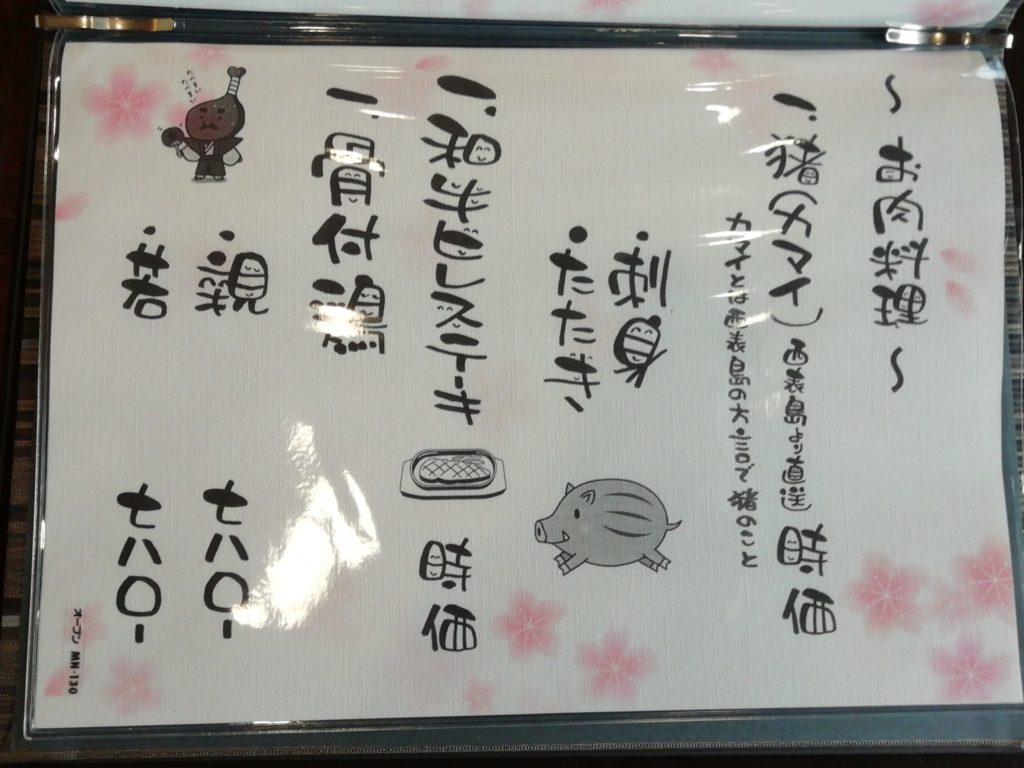 ～お肉料理～
一、猪(カマイ)(西表島より直送) 時価
カマイとは西表島の方言で猪のこと
・刺身
・たたき
一、和牛ヒレステーキ 時価
一、骨付鶏
・親 七八〇-
・若 七八〇-
オープン MN-130